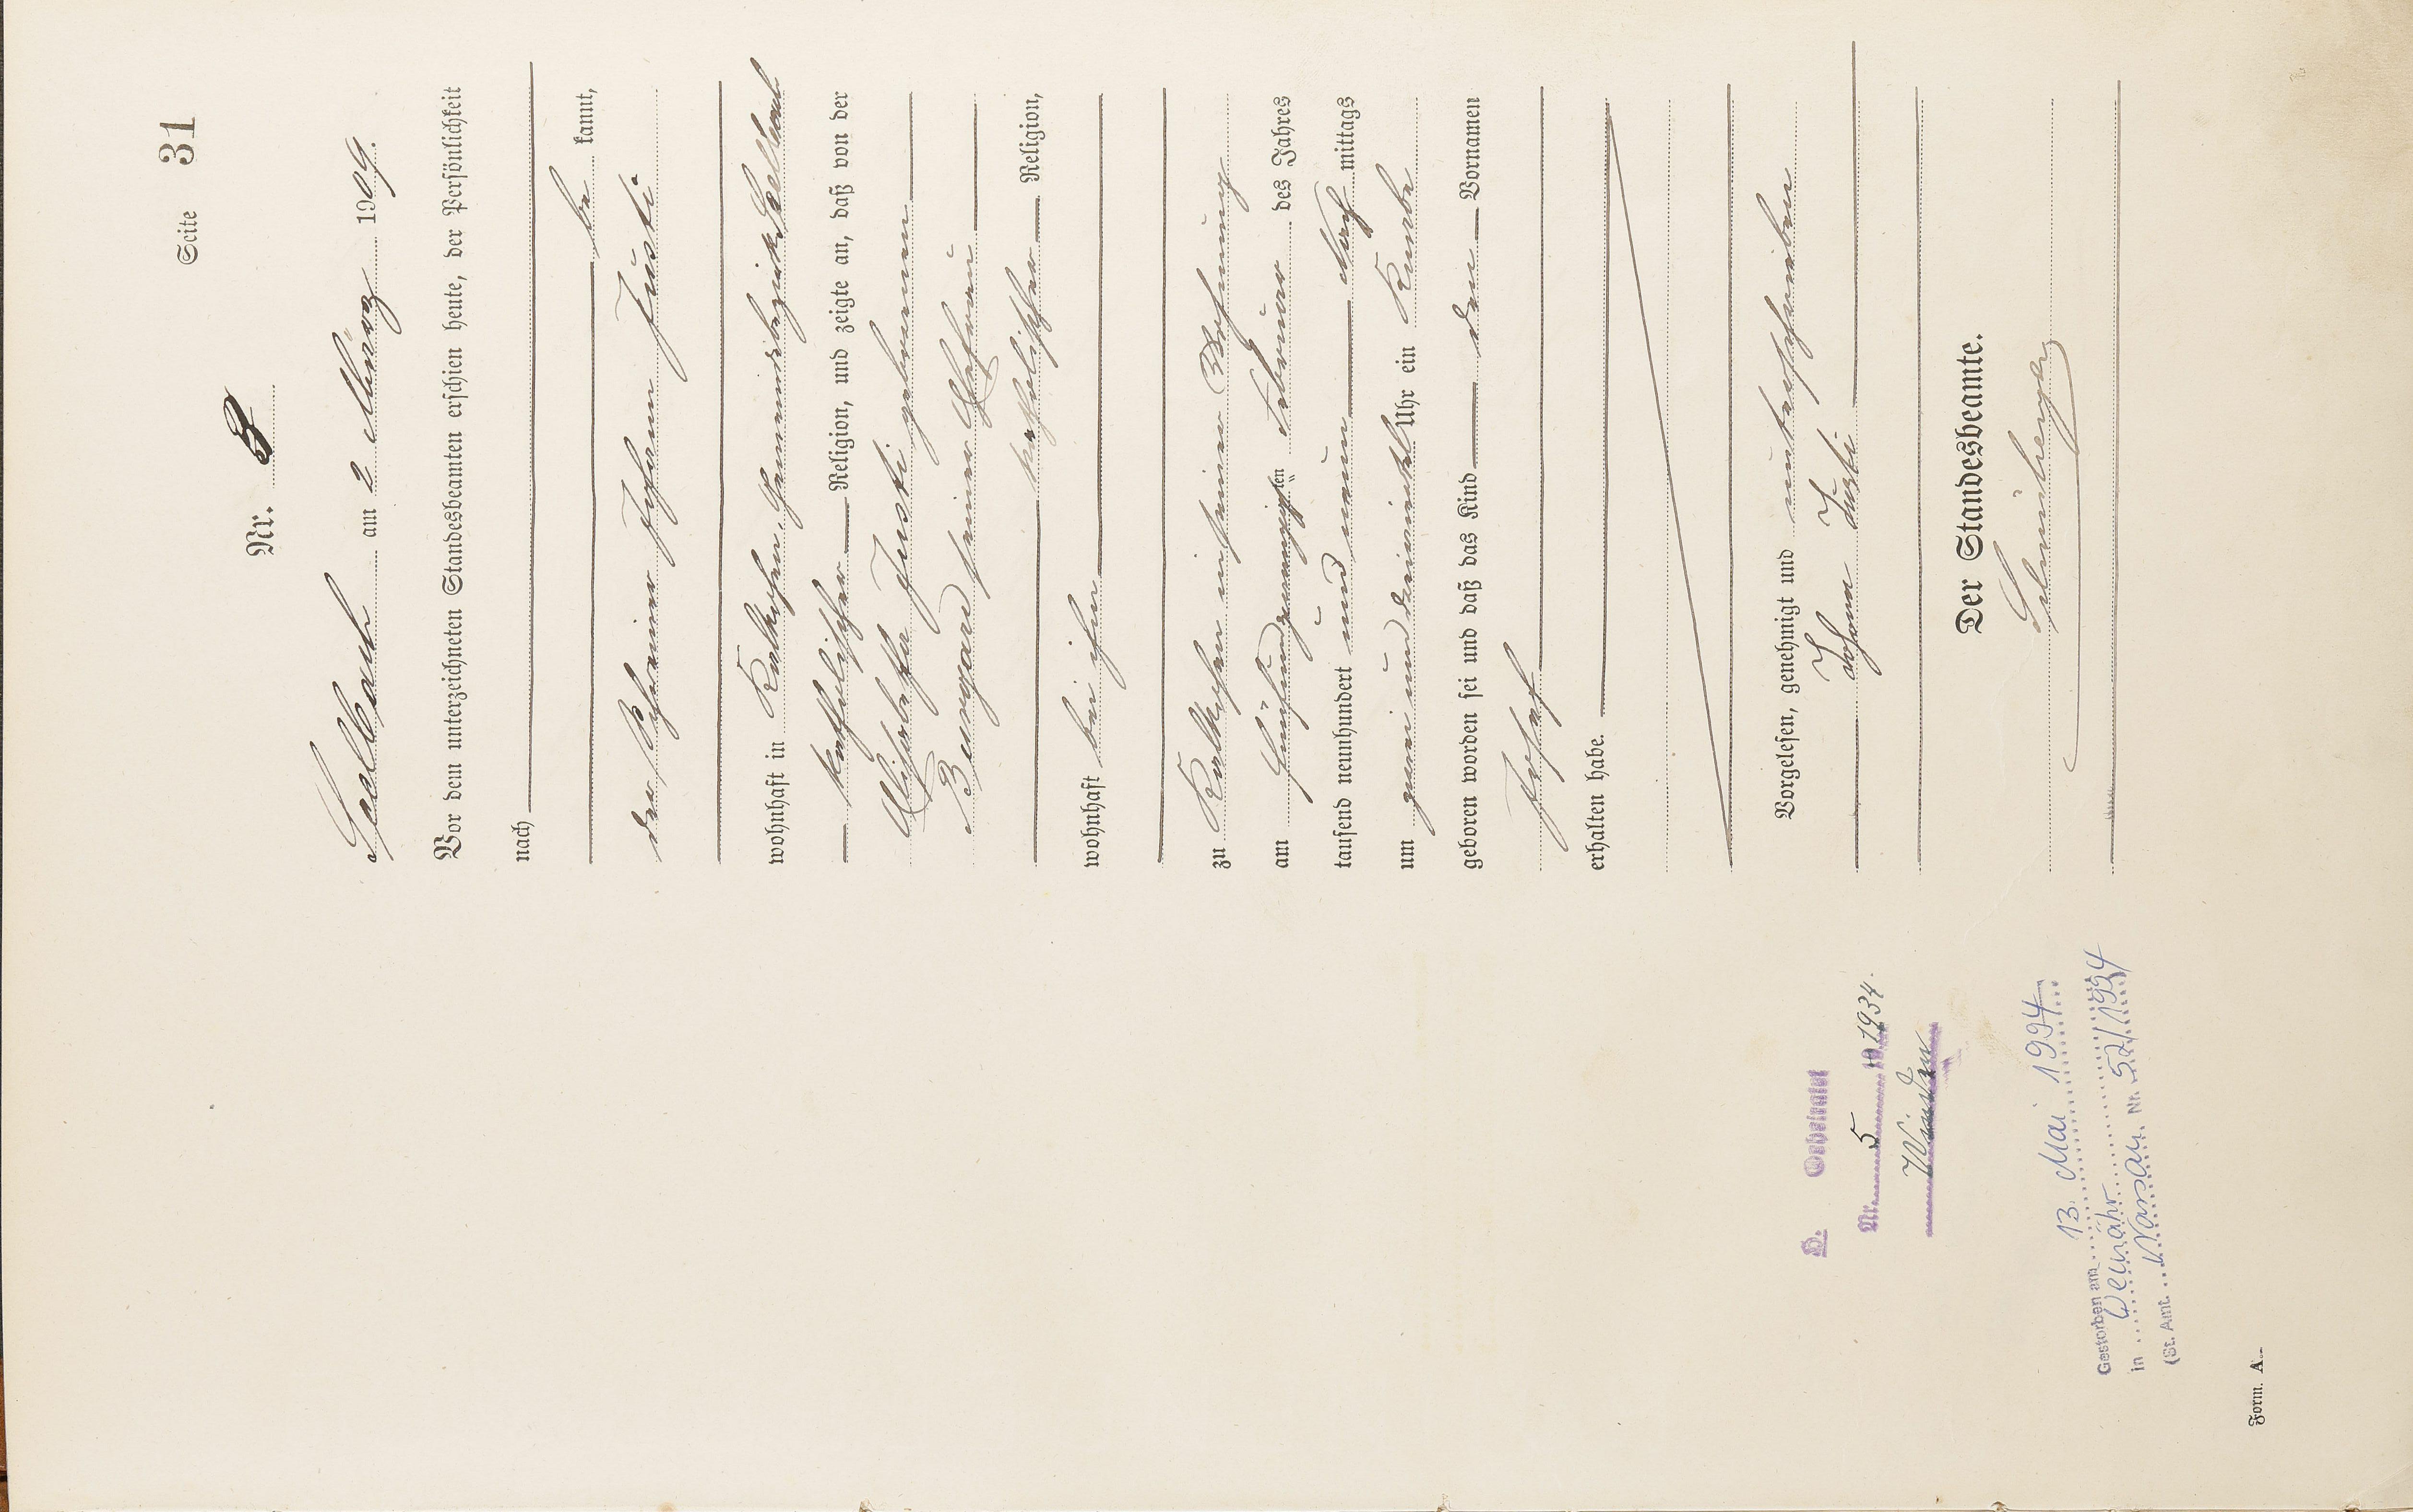 Seite 31
Nr. 3
Seelbach am 2 März 1909.
Vor dem unterzeichneten Standesbeamten erschien heute, der Persönlichkeit
nach
be kannt,
der Schreiner Johann Justi
wohnhaft in Kalkofen, Gemeindebezirk Seelbach
katholischer Religion, und zeigte an, daß von der
Elisabetha Justi geborenen
Bungard seiner Ehefrau
katholischer Religion,
wohnhaft bei ihm
zu Kalkofen in seiner Wohnung
am fünfundzwanzigsten Februar des Jahres
tausend neunhundert und neun Nach mittags
um zwei und dreiviertel Uhr ein Knabe
geboren worden sei und daß das Kind den Vornamen
Josef
erhalten habe.
Vorgelesen, genehmigt und unterschrieben
Johann Justi
Der Standesbeamte.
H. Eheschl.
Nr. 5 19 1934.
Gestorben am 13. Mai 1994
in Weinähr
(St. Amt. Nassau Nr. 52/1994
Form. A.